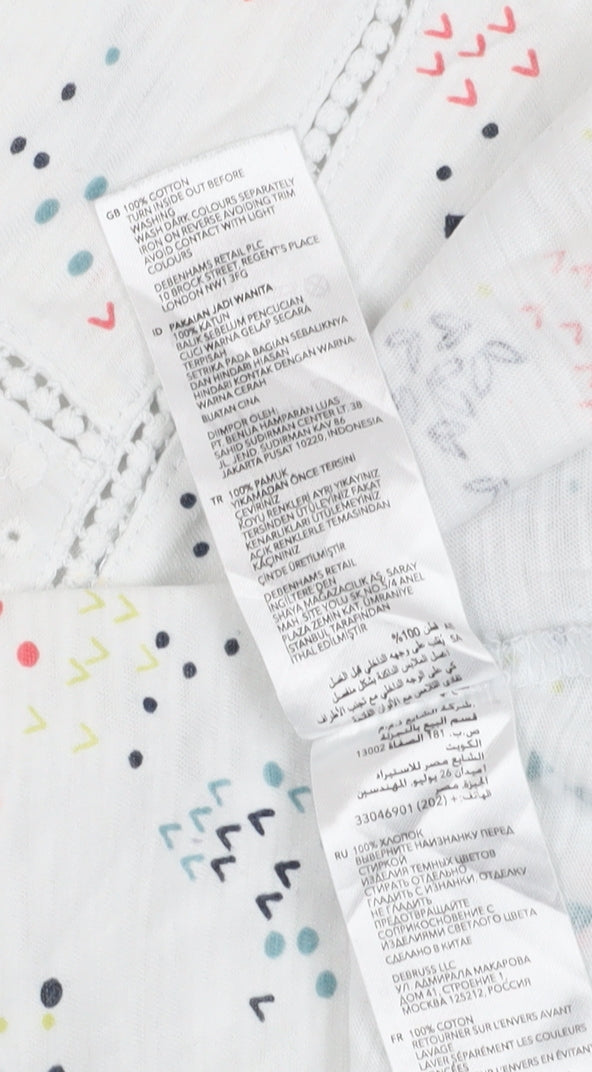 GB 100% COTTON
TURN INSIDE OUT BEFORE
WASHING
WASH DARK COLOURS SEPARATELY
IRON ON REVERSE AVOIDING TRIM
AVOID CONTACT WITH LIGHT
COLOURS
DEBENHAMS RETAIL PLC
10 BROCK STREET REGENT'S PLACE
LONDON NW1 3FG
ID PAKAIAN JADI WANITA
100% KATUN
BALIK SEBELUM PENCUCIAN
CUCI WARNA GELAP SECARA
TERPISAH
SETRIKA PADA BAGIAN SEBALIKNYA
DAN HINDARI HIASAN
HINDARI KONTAK DENGAN WARNA
WARNA CERAH
BUATAN CINA
DIIMPOR OLEH:
PT. BENUA HAMPARAN LUAS
SAHID SUDIRMAN CENTER LT. 38
JL. JEND. SUDIRMAN KAV 86
JAKARTA PUSAT 10220, INDONESIA
TR 100% PAMUK
YIKAMADAN ÖNCE TERSİNİ
ÇEVİRİNİZ
KOYU RENKLERİ AYRI YIKAYINIZ
TERSİNDEN ÜTÜLEYİNİZ FAKAT
KENARLIKLARI ÜTÜLEMEYİNİZ
AÇIK RENKLERLE TEMASINDAN
KAÇININIZ
ÇİN'DE ÜRETİLMİŞTİR
DEBENHAMS RETAIL
İNGİLTERE'DEN
SHAYA MAĞAZACILIK AŞ, SARAY
MAH. SİTE YOLU SK. NO 3/4 ANEL
PLAZA ZEMİN KAT, ÜMRANİYE
İSTANBUL TARAFINDAN
İTHAL EDİLMİŞTİR
SA قطن 100%
ص.ب. 181 الصفاة 13002
الكويت
الشايع مصر للاستيراد
ميدان 26 يوليو, المهندسين
الجيزة, مصر
الهاتف: + (202) 33046901
RU 100% ХЛОПОК
ВЫВЕРНИТЕ НАИЗНАНКУ ПЕРЕД
СТИРКОЙ
ИЗДЕЛИЯ ТЕМНЫХ ЦВЕТОВ
СТИРАТЬ ОТДЕЛЬНО
ГЛАДИТЬ С ИЗНАНКИ, ОТДЕЛКУ
НЕ ГЛАДИТЬ
ПРЕДОТВРАЩАЙТЕ
СОПРИКОСНОВЕНИЕ С
ИЗДЕЛИЯМИ СВЕТЛОГО ЦВЕТА
СДЕЛАНО В КИТАЕ
DEBRUSS LLC
УЛ. АДМИРАЛА МАКАРОВА
ДОМ 41, СТРОЕНИЕ 1,
МОСКВА 125212, РОССИЯ
FR 100% COTON
RETOURNER SUR L'ENVERS AVANT
LAVAGE
LAVER SÉPARÉMENT LES COULEURS
FONCÉES
SUR L'ENVERS EN ÉVITANT